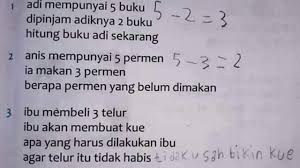 1 adi mempunyai 5 buku 5 - 2 = 3
dipinjam adiknya 2 buku
hitung buku adi sekarang
2 anis mempunyai 5 permen 5 - 3 = 2
ia makan 3 permen
berapa permen yang belum dimakan
3 ibu membeli 3 telur
ibu akan membuat kue
apa yang harus dilakukan ibu
agar telur itu tidak habis tidak usah bikin kue